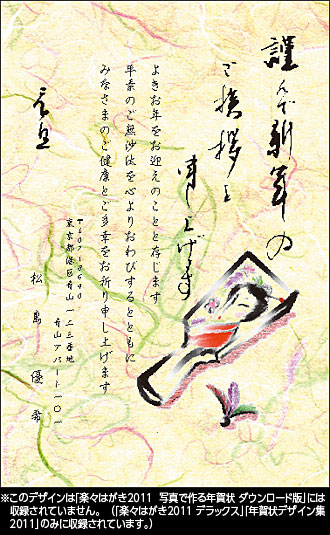 謹んで新年の
ご挨拶を
申し上げます
よきお年をお迎えのことと存じます
年末のご無沙汰を心よりおわびするとともに
みなさまのご健康とご多幸をお祈り申し上げます
元旦
〒107-8640
東京都港区青山一二三番地
青山アパート一〇一
松島優希
※このデザインは「楽々はがき2011 写真で作る年賀状 ダウンロード版」には
収録されていません。(「楽々はがき2011 デラックス」「年賀状デザイン集
2011」のみに収録されています。)